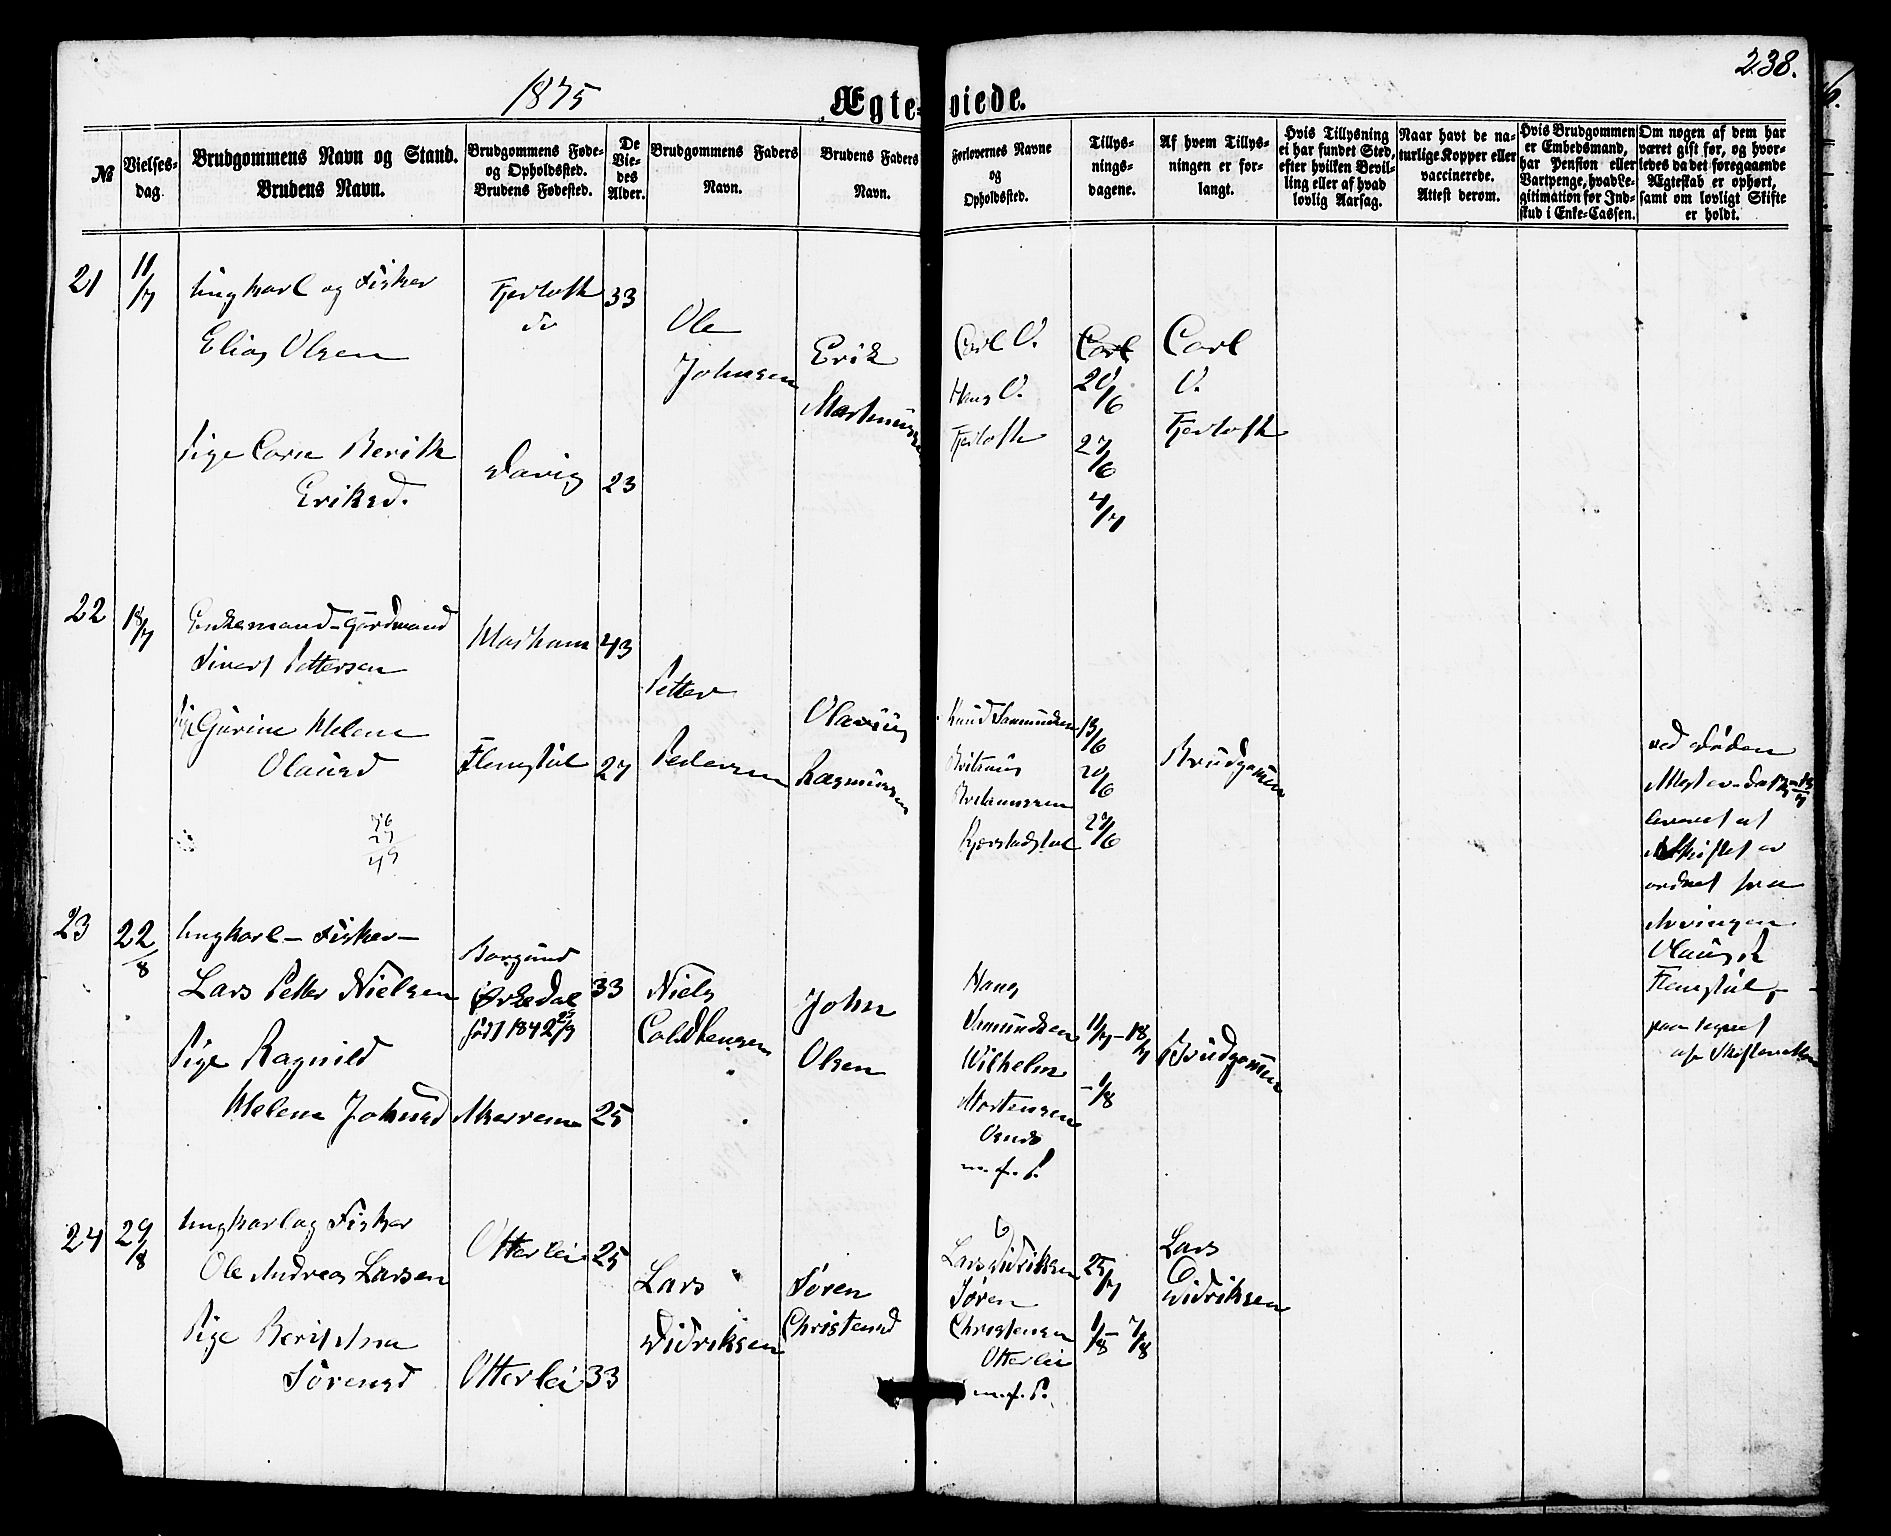 238.
1875
Ægte- viede.
№
Vielses-
dag.
Brudgommens Navn og Stand.
Brudens Navn.
Brudgommens Føde-
og Opholdssted.
Brudens Fødested.
De
Vie-
des
Alder.
Brudgommens Faders
Navn.
Brudens Faders
Navn.
Forlovernes Navne
og
Opholdssted.
Tillys-
nings-
dagene.
Af hvem Tillys-
ningen er for-
langt.
Hvis Tillysning
ei har fundet Sted,
efter hvilken Bevil-
ling eller af hvad
lovlig Aarsag.
Naar havt de na-
turlige Kopper eller
vaccinerede.
Attest derom.
Hvis Brudgommen
er Embedsmand,
har Pension eller
Vartpenge, hvad Le-
gitimation for Ind-
skud i Enke-Cassen.
Om nogen af dem har
været gift før, og hvor-
ledes da det foregaaende
Ægteskab er ophørt,
samt om lovligt Skifte
er holdt.
21
11/7
Ungkarl og Fisker
Elias Olsen
Pige Carn Berith
Eriksd.
Fjertoft
do
33
23
Ole
Johnsen
Erik
Carl O.
Hans O.
Fjertoft
Carl
20/6
27/6
4/7
Carl
O.
Fjertoft
22
18/7
Enkemand - Gårdmand
Sivert Pettersen
Pige Gurine Helene
Olausd
Flemstul
43
27
Petter
Pedersen
Olaus
Rasmussen
Knud
13/6
20/6
27/6
Brudgommen
ved Døden
ordnet
Flemstul
76
27
49
23
22/8
Ungkarl - Fisker -
Lars Petter Nielsen
Pige Ragnild
Helene Johnsd
Borgund
født 1842
33
25
Niels
John
Olsen
Hans
Amundsen
Wilhelm
Mortensen
m. f. P.
11/7 - 18/7
- 1/8
Brudgommen
24
29/8
Ungkarl og Fisker
Ole Andreas Larsen
Pige Berit Ana
Sørensd
Otterlei
Otterlei
25
33
Lars
Didriksen
Søren
Christensd
Lars Didriksen
Søren
Christensen
Otterlei
m. f. P.
25/7
1/8 - 7/8
Lars
Didriksen